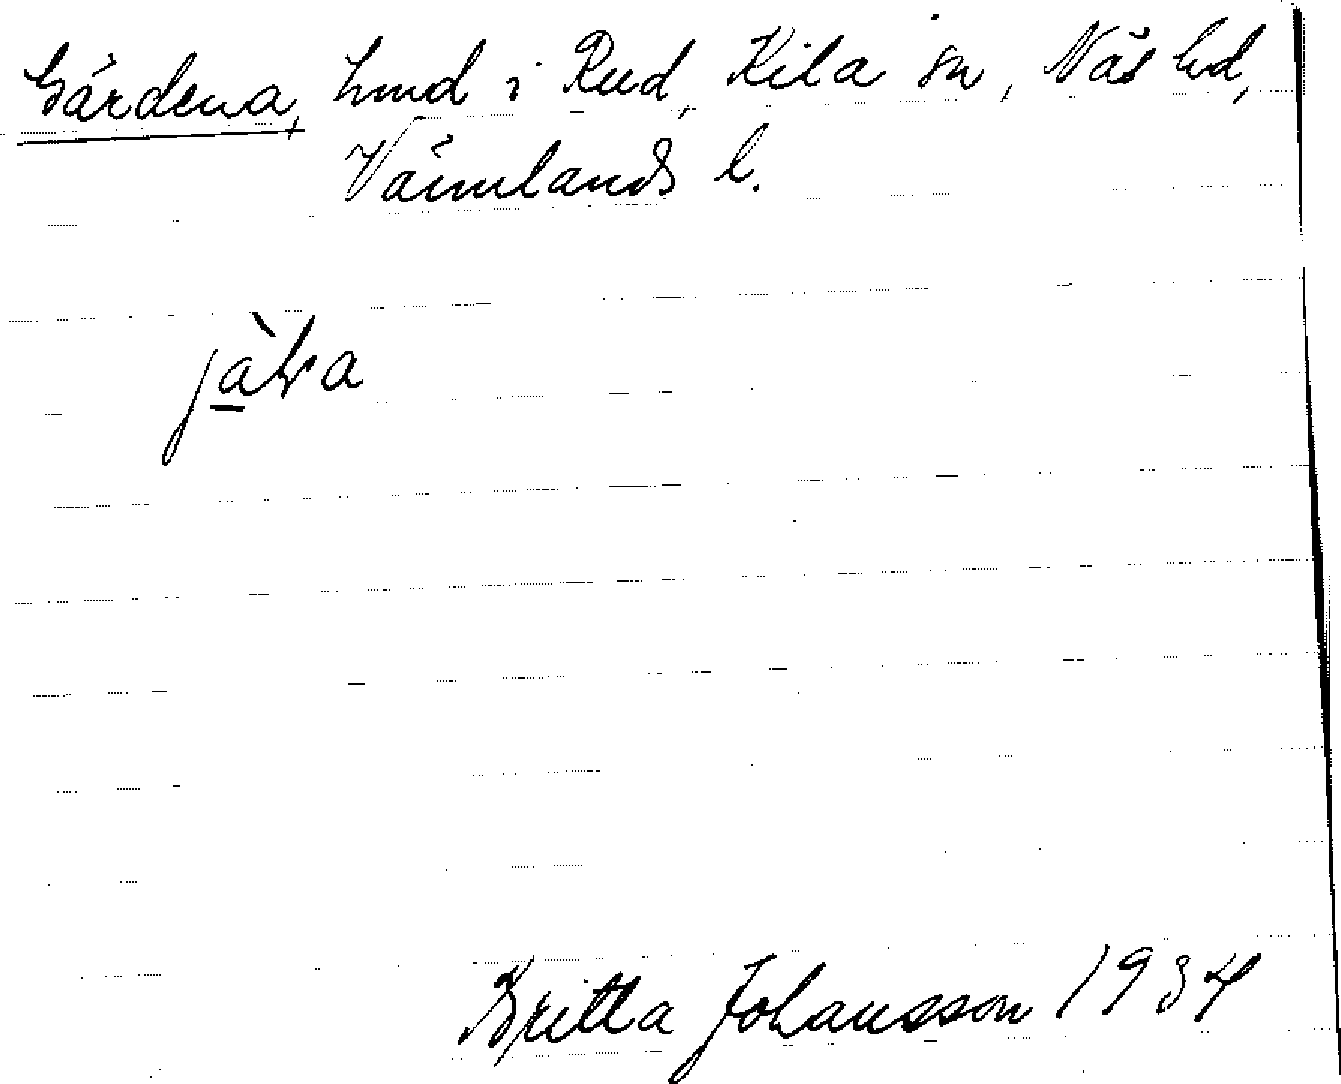 Gärdena, hmd i Rud, Kila sn, Näs hd,
Värmlands l.
Britta Johansson 1934